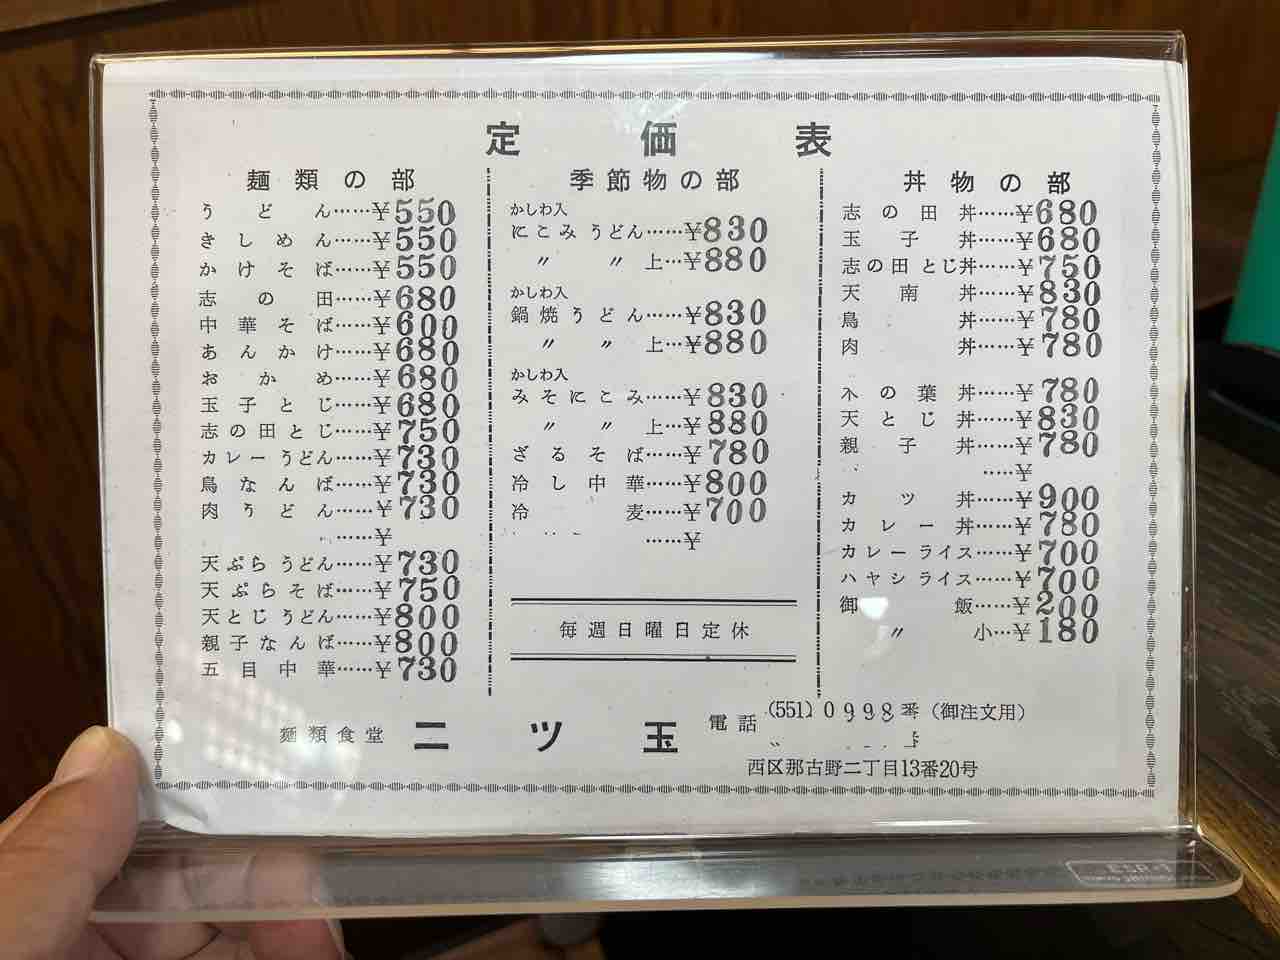 定価表
麺類の部
うどん……¥550
きしめん……¥550
かけそば……¥550
志の田……¥680
中華そば……¥600
あんかけ……¥680
おかめ……¥680
玉子とじ……¥680
志の田とじ……¥750
カレーうどん……¥730
鳥なんば……¥730
肉うどん……¥730
……¥
天ぷらうどん……¥730
天ぷらそば……¥750
天とじうどん……¥800
親子なんば……¥800
五目中華……¥730
季節物の部
かしわ入
にこみうどん……¥830
〃 〃 上…¥880
かしわ入
鍋焼うどん……¥830
〃 〃 上…¥880
かしわ入
みそにこみ……¥830
〃 〃 上…¥880
ざるそば……¥780
冷し中華……¥800
冷麦……¥700
……¥
毎週日曜日定休
丼物の部
志の田丼……¥680
玉子丼……¥680
志の田とじ丼……¥750
天南丼……¥830
鳥丼……¥780
肉丼……¥780
木の葉丼……¥780
天とじ丼……¥830
親子丼……¥780
……¥
カツ丼……¥900
カレー丼……¥780
カレーライス……¥700
ハヤシライス……¥700
御飯……¥200
〃 小…¥180
麺類食堂 二ツ玉 電話 (551) 0998番 (御注文用)
西区那古野二丁目13番20号